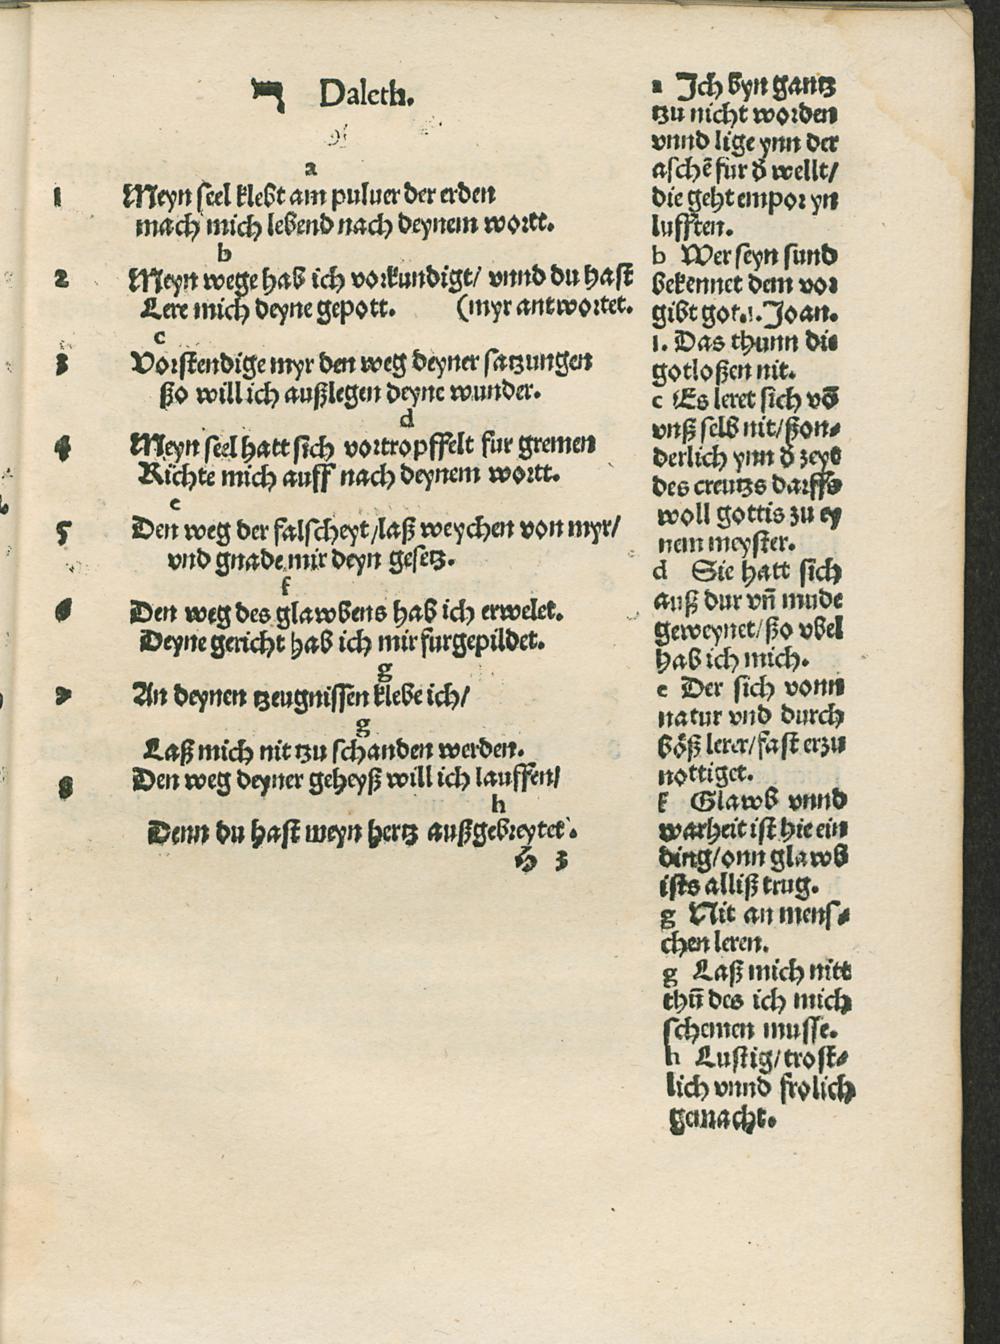 ד Daleth.
a
1 Meyn seel klebt am puluer der erden
mach mich lebend nach deynem wortt.
b
2 Meyn wege hab ich vorkundigt/ vnnd du hast
Lere mich deyne gepott. (myr antwortet.
c
3 Vorstendige myr den weg deyner satzungen
ßo will ich außlegen deyne wunder.
d
4 Meyn seel hatt sich vortropffelt fur gremen
Richte mich auff nach deynem wortt.
e
5 Den weg der falscheyt/laß weychen von myr/
vnd gnade mir deyn gesetz.
f
6 Den weg des glawbens hab ich erwelet.
Deyne gericht hab ich mir furgepildet.
g
7 An deynen tzeugnissen klebe ich/
g
Laß mich nit tzu schanden werden.
8 Den weg deyner geheyß will ich lauffen/
h
Denn du hast meyn hertz außgebreytet.
H 3
a Ich byn gantz
tzu nicht worden
vnnd lige ynn der
aschē fur d̄ wellt/
die geht empor yn
lufften.
b Wer seyn sund
bekennet dem vor
gibt got.1.Joan.
1. Das thunn die
gotloßen nit.
c Es leret sich vō
vnß selb nit/ßon⸗
derlich ynn d̄ zeyt
des creutzs darffs
woll gottis zu ey
nem meyster.
d Sie hatt sich
auß dur vn̄ mude
geweynet/ßo vbel
hab ich mich.
e Der sich vonn
natur vnd durch
böß lerer/fast erzu
nottiget.
f Glawb vnnd
warheit ist hie ein
ding/onn glawb
ists alliß trug.
g Nit an mens⸗
chen leren.
g Laß mich nitt
thū des ich mich
schemen musse.
h Lustig/trost⸗
lich vnnd frolich
gemacht.